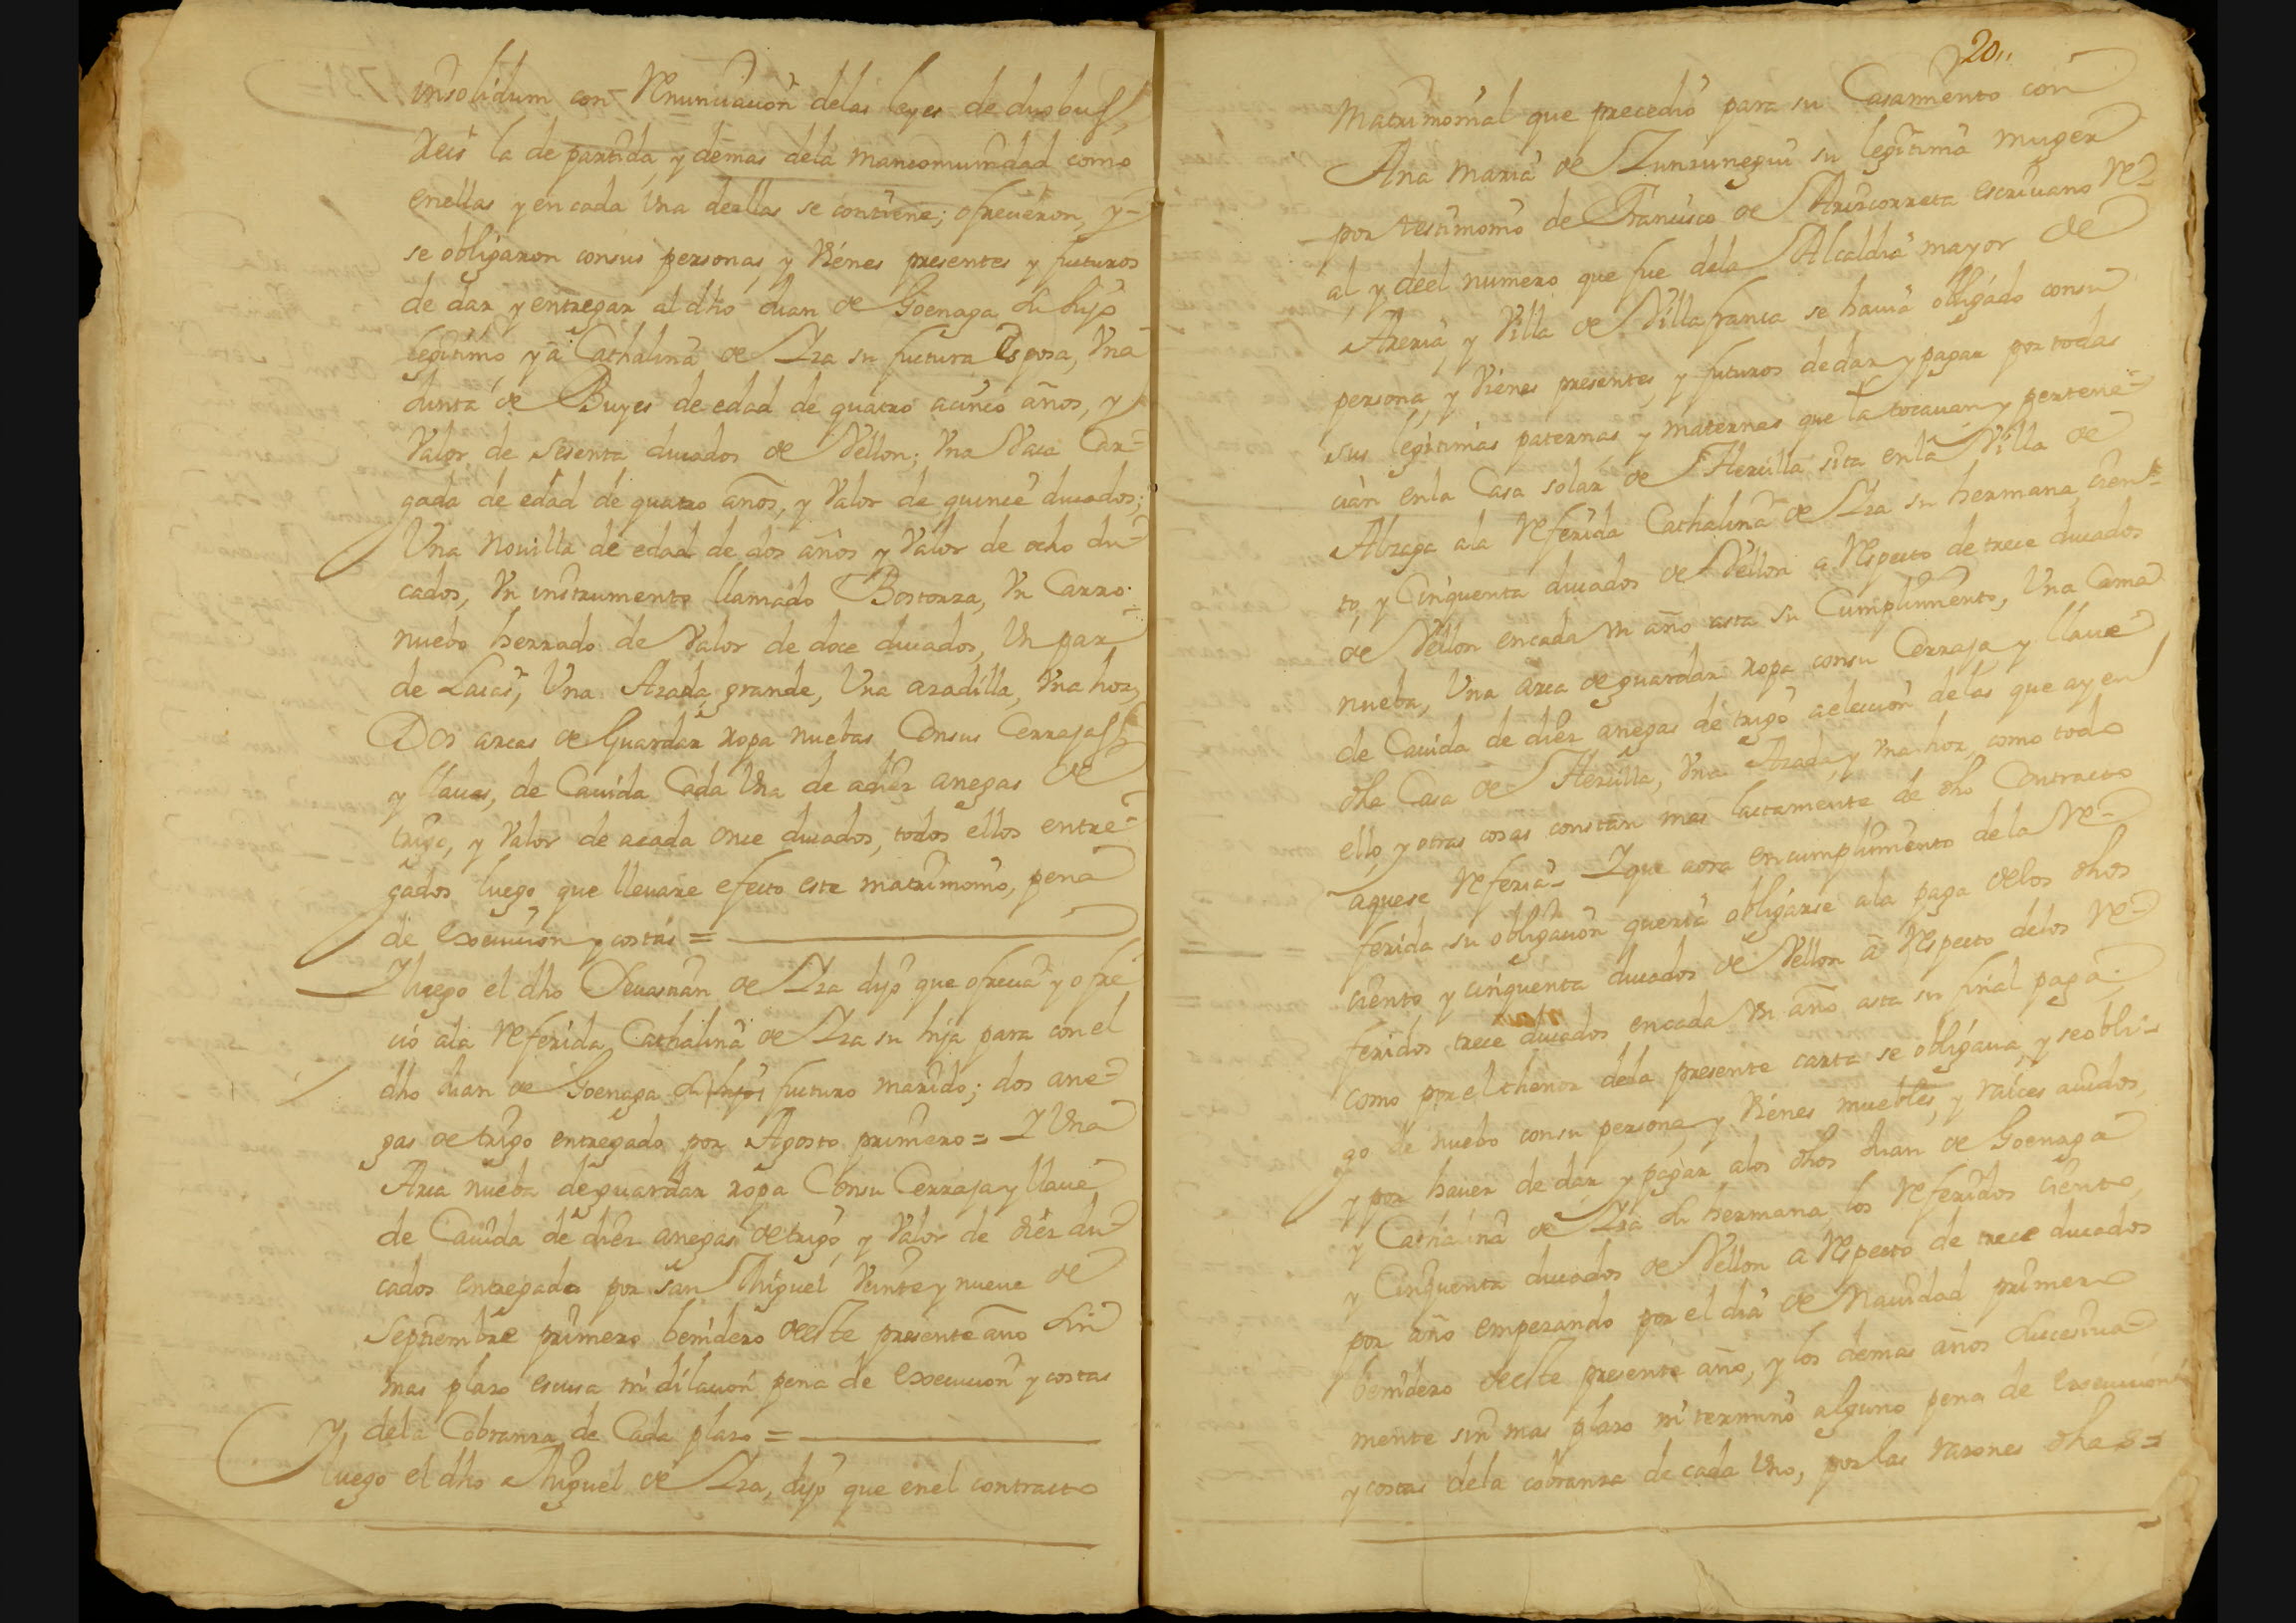 insolidum con Renunciacion delas leyes de duobus
Reis la de partida, y demas dela mancomunidad como
enellas y en cada Una deellas se contiene; ofrecieron, y
se obligaron consus personas y Vienes presentes y futuros
de dar y entregar al dho Juan de Goenaga su hijo
legitimo y a Cathalina de Yza su futura Esposa, Una
Junta de Buyes de edad de quatro acinco años, y
Valor de Sesenta ducados de Vellon; Una Vaca Car=
gada de edad de quatro años, y Valor de quince ducados;
Una Novilla de edad de dos años y Valor de ocho du=
cados, Un instrumento llamado Bostorza, Un Carro
nuebo herrado de Valor de doce ducados, Un par
de Laias, Una Azada grande, Una azadilla, Una hoz,
Dos arcas de Guardar ropa nuebas Consus Cerrajas
y llaues, de Cauida Cada Una de adiez anegas de
trigo, y Valor de acada once ducados, todos ellos entre=
gados luego que lleuare efecto este matrimonio, pena
de execucion y costas =
Y luego el dho Seuastian de Yza dijo que ofrecia y ofre
ció ala Referida Cathalina de Yza su hija para con el
dho Juan de Goenaga su futuro marido; dos ane=
gas de trigo entregado por Agosto primero = Y Una
Arca nueba deguardar ropa Consu Cerraja y llaue
de Cauida de diez anegas de trigo, y Valor de diez du=
cados entregado por San Miguel Veinte y nueue de
Septiembre primero benidero deeste presente año sin
mas plazo escusa ni dilacion pena de execucion y costas
dela Cobranza de Cada plazo =
Y luego el dho Miguel de Yza, dijo que enel contracto
20,,
Matrimonial que precedió para su Casamiento con
Ana Maria de Zunzunegui su legitima muger
por testimonio de Francisco de Arizcorreta escriuano Re=
al y deel numero que fue dela Alcaldia mayor de
Areria, y Villa de Villafranca se hauia obligado consu
persona, y Vienes presentes, y futuros dedar y pagar por todas
sus legitimas paternas y maternas que la tocauan y pertene=
cian enla Casa solar de Hercilla sita enla Villa de
Alzaga ala Referida Cathalina de Yza su hermana cien=
to, y Cinquenta ducados de Vellon a Respecto de trece ducados
de Vellon encada un año asta su Cumplimiento, Una Cama
nueba, Una arca de guardar ropa consu Cerraja y llaue
de Cauida de diez anegas de trigo aeleccion delas que ay en
dha Casa de Hercilla, Una Azada, y Una hoz, como todo
ello y otras cosas constan mas lactamente de dho Contracto
aquese Referia = Y que aora encumplimiento dela Re=
ferida su obligacion queria obligarse ala paga delos dhos
ciento y cinquenta ducados de Vellon a Respecto delos Re=
feridos trece ducados encada Un año asta su final paga
como por el thenor dela presente carta se obligaua, y seobli=
go de nuebo consu persona, y Vienes muebles, y raices auidos,
y por hauer de dar y pagar alos dhos Juan de Goenaga
y Cathalina de Yza su hermana, los Referidos ciento
y Cinquenta ducados de Vellon a Respecto de trece ducados
por año empezando por el dia de Nauidad primero
benidero deeste presente año, y los demas años sucesiua=
mente sin mas plazo ni termino alguno pena de execucion
y costas dela cobranza de cada Uno, por las razones dhas =